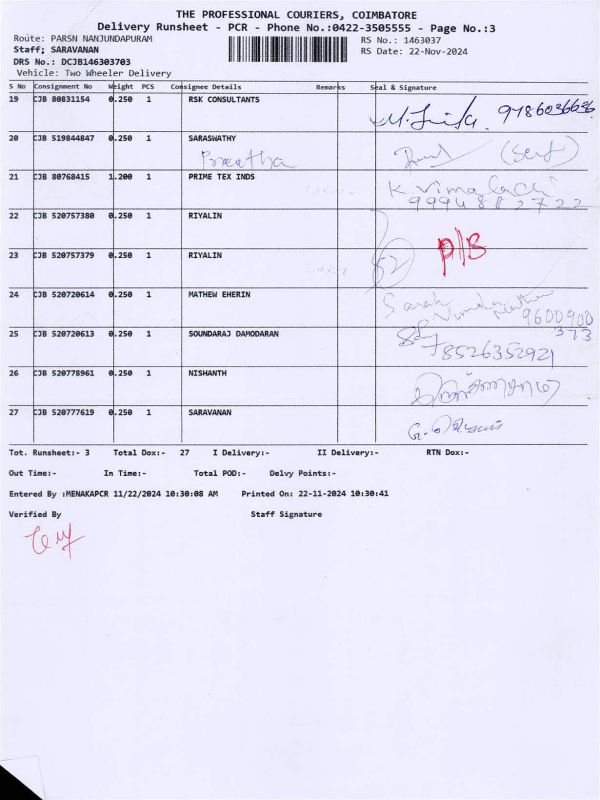 THE PROFESSIONAL COURIERS, COIMBATORE
Delivery Runsheet - PCR - Phone No.:0422-3505555 - Page No.:3
Route: PARSN NANJUNDAPURAM RS No.: 1463037
Staff; SARAVANAN RS Date: 22-Nov-2024
DRS No.: DCJB146303703
Vehicle: Two Wheeler Delivery
S No Consignment No Weight PCS Consignee Details Remarks Seal & Signature
19 CJB 80831154 0.250 1 RSK CONSULTANTS 9786036636
20 CJB 519844847 0.250 1 SARASWATHY
Preetha (Self)
21 CJB 80768415 1.200 1 PRIME TEX INDS K Vimalachi
9994882722
22 CJB 520757380 0.250 1 RIYALIN
P/B
23 CJB 520757379 0.250 1 RIYALIN 52
24 CJB 520720614 0.250 1 MATHEW EHERIN Sarah
9600900
373
25 CJB 520720613 0.250 1 SOUNDARAJ DAMODARAN
8526352921
26 CJB 520778961 0.250 1 NISHANTH
27 CJB 520777619 0.250 1 SARAVANAN
Tot. Runsheet:- 3 Total Dox:- 27 I Delivery:- II Delivery:- RTN Dox:-
Out Time:- In Time:- Total POD:- Delvy Points:-
Entered By :MENAKAPCR 11/22/2024 10:30:08 AM Printed On: 22-11-2024 10:30:41
Verified By Staff Signature